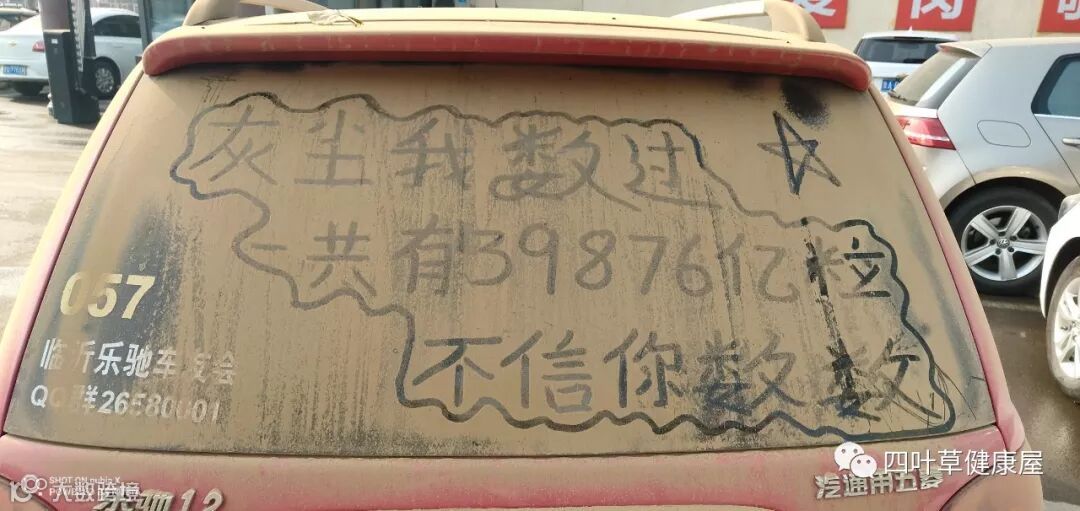 灰尘我数过
一共有39876亿粒
不信你数数
057
临沂乐驰车友会
QQ群26580001
四叶草健康屋
SHOT ON nubia X
大数跨境
乐驰1.2
汽通用五菱